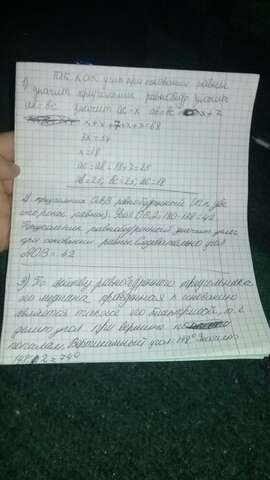 1) Так как углы при основании равны
значит треугольник равнобедр. значит
AB = BC значит AC = x AB = BC = x + 7
x + 7 + x + x = 68
3x = 54
x = 18
18 + 7 = 25
AB = 25, BC = 25, AC = 18
2) треугольник равнобедренный т.к. две
стороны равны. 180 - 138 = 42
Треугольник равнобедренный значит углы
при основании равны следовательно угол
AOB = 42
3) По свойству равнобедренного треугольника
его медиана проведенная к основанию
является также его биссектрисой, т.е.
делит угол при вершине
пополам. Вертикальный угол 148° Значит
148 : 2 = 74°